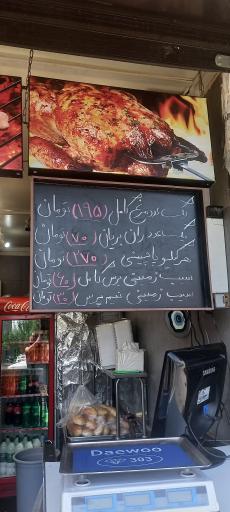 یک عدد مرغ کامل (۱۹۵) تومان
یک عدد ران بریان (۷۰) تومان
هر کیلو با چینی (۲۷۰) تومان
سیب زمینی پرس کامل (۶۰) تومان
سیب زمینی نیم پرس (۳۰) تومان
Coca-Cola
SAMSUNG
Daewoo
303